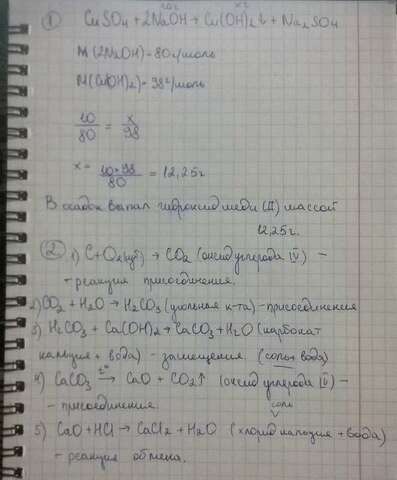 1) 10г xг
CuSO4 + 2NaOH → Cu(OH)2↓ + Na2SO4
M(2NaOH) = 80г/моль
M(Cu(OH)2) = 98г/моль
10/80 = x/98
x = 10*98/80 = 12,25г
В осадок выпал гидроксид меди (II) массой
12,25г.
2) 1) C + O2(изб) → CO2 (оксид углерода IV) –
- реакция присоединения.
2) CO2 + H2O → H2CO3 (угольная к-та) - присоединения
3) H2CO3 + Ca(OH)2 → CaCO3 + H2O (карбонат
кальция + вода) - замещения (соль + вода)
4) CaCO3 t° → CaO + CO2↑ (оксид углерода IV) –
- присоединения. соль
5) CaO + HCl → CaCl2 + H2O (хлорид кальция + вода)
- реакция обмена.